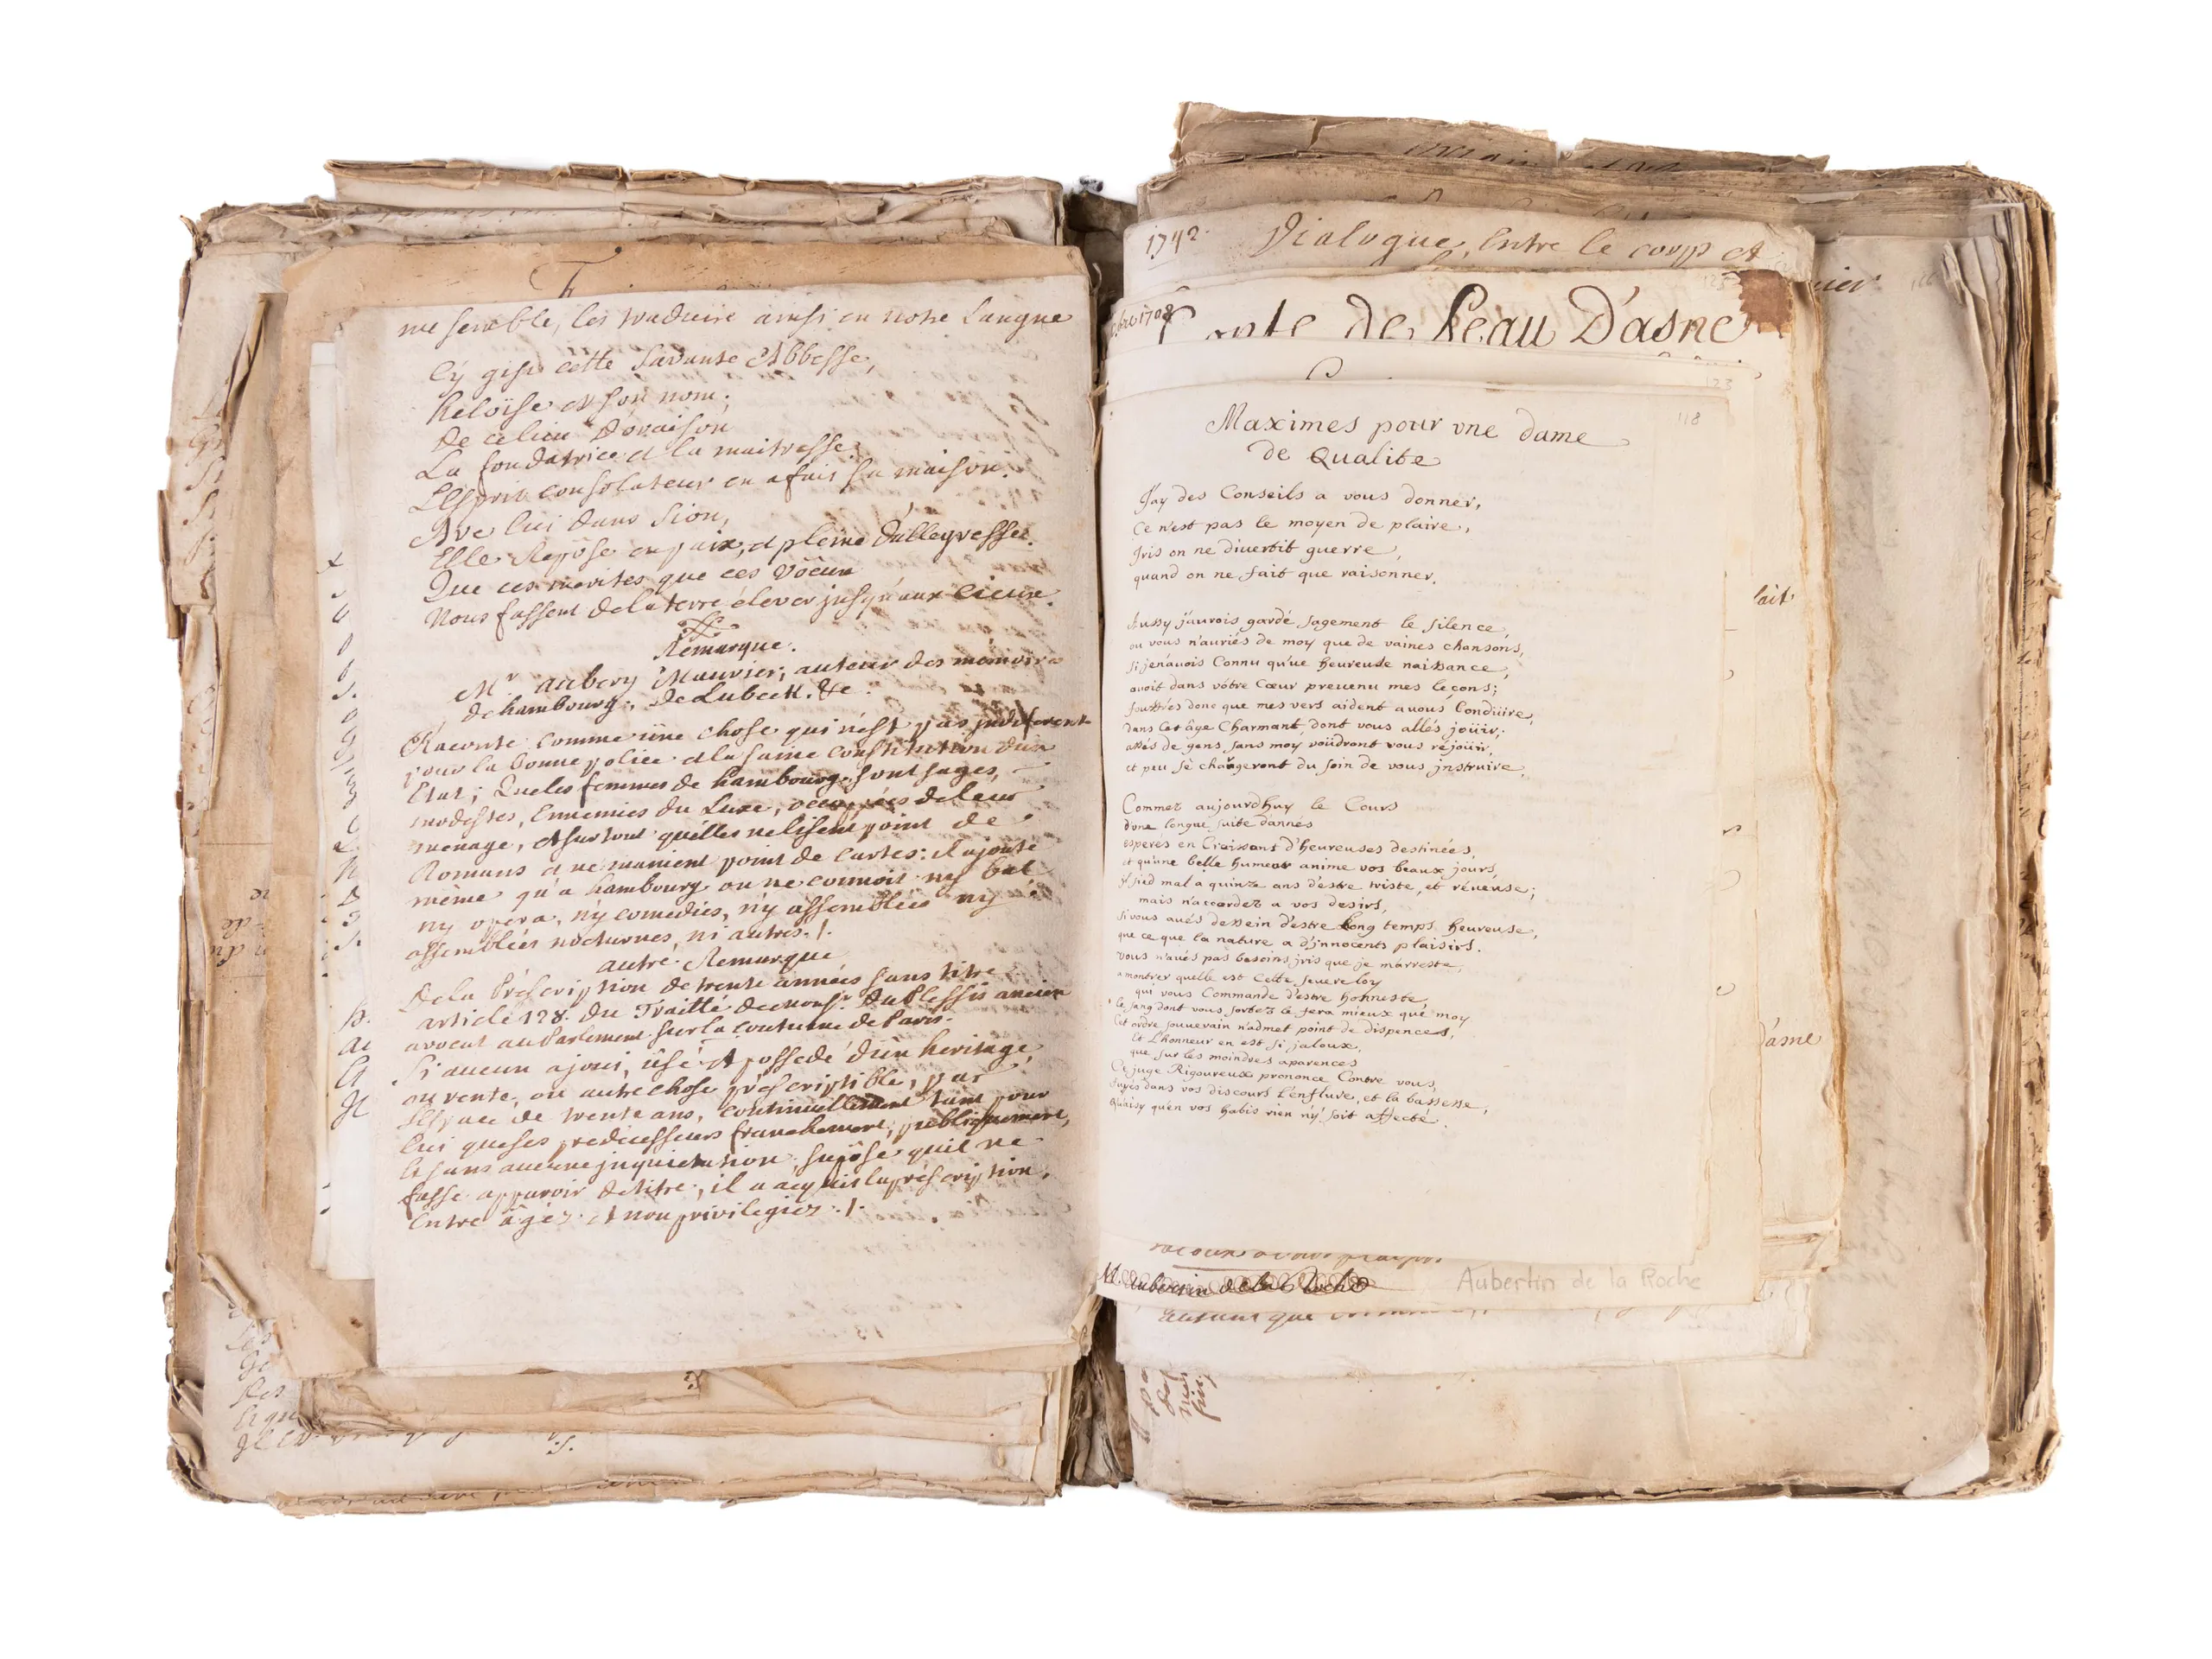 me semble, les traduire ainsi en notre Langue
Cÿ gist cette savante Abbesse,
heloïse est son nom;
De ce lieu D'oraison
La fondatrice et la maitresse.
L'Esprit consolateur en a fait sa maison.
Ave lui dans Sion,
Elle Repose en paix, et pleine D'allegresse.
Que ces merites que ces Vöeux
Nous fassent de la terre élever jusqu'aux Cieux.
Remarque.
Mr. aubery Maurier; auteur des mémoires
de hambourg, de Lubeck. &c.
Raconte comme üne chose qui n'est pas indiferente
pour la bonne police et la saine constitution d'un
Etat; Que les femmes de hambourg sont sages,
modestes, Ennemies du Luxe, occupées de leur
menage, et surtout qu'elles ne lisent point de
Romans et ne manient point de Cartes: il ajoute
même qu'a hambourg on ne connoit ny bal
ny opera, nÿ comedies, nÿ assemblées ny
assemblées nocturnes, ni autres. /.
autre Remarque
De la Préscription de trente années sans titre
article 128. du Traitté de monsr. Du Plessis ancien
avocat au Parlement sur la coutume de Paris.
Si aucun a joui, üsé et possedé d'ün heritage,
ou rente, ou autre chose préscriptible, par
l'Espace de trente ans, continuellement tant pour
lui que ses predecesseurs franchement, publiquement,
et sans aucune inquietation, supôsé qu'il ne
fasse apparoir de titre, il a acquis la préscription,
Entre âgés et non privilegiés. /.
1742. Dialogue, Entre le corp et
1708 Conte de Peau D'asne
123
118
Maximes pour vne dame
de Qualite
J'ay des Conseils a vous donner,
Ce n'est pas le moyen de plaire,
Iris on ne diuertit guerre,
quand on ne fait que raisonner.
Aussy j'aurois gardé sagement le silence,
ou vous n'auriés de moy que de vaines chansons,
si je n'auois Connu qu'ue heureuse naissance,
auoit dans vôtre Cœur preuenu mes leçons;
souffrés donc que mes vers aident a vous Conduire,
Dans Cet âge Charmant, dont vous allés joüir;
assés de gens sans moy voudront vous réjoüir,
et peu se chargeront du soin de vous jnstruire.
Commes aujourd'huy le Cours
d'une longue suite d'annés
esperés en Croissant d'heureuses destinées,
et qu'une belle humeur anime vos beaux jours,
Il sied mal a quinze ans d'estre triste, et réueuse;
mais n'accordez a vos desirs,
si vous aués dessein d'estre long temps heureuse,
que ce que la nature a d'jnnocents plaisirs.
vous n'aués pas besoins jris que je m'arreste,
a montrer quelle est Cette seuere loy
qui vous Commande d'estre honneste,
le sang dont vous sortez le fera mieux que moy
Cet ordre souuerain n'admet point de dispences,
Et L'honneur en est si jaloux,
que sur les moindres aparences
Ce juge Rigoureux prononce Contre vous,
fuyés dans vos discours L'enflure, et la bassesse,
Qu'aisy qu'en vos habis rien n'y soit affecté.
lait
D'ame
M. Aubertin de la Roche
Aubertin de la Roche
autant que